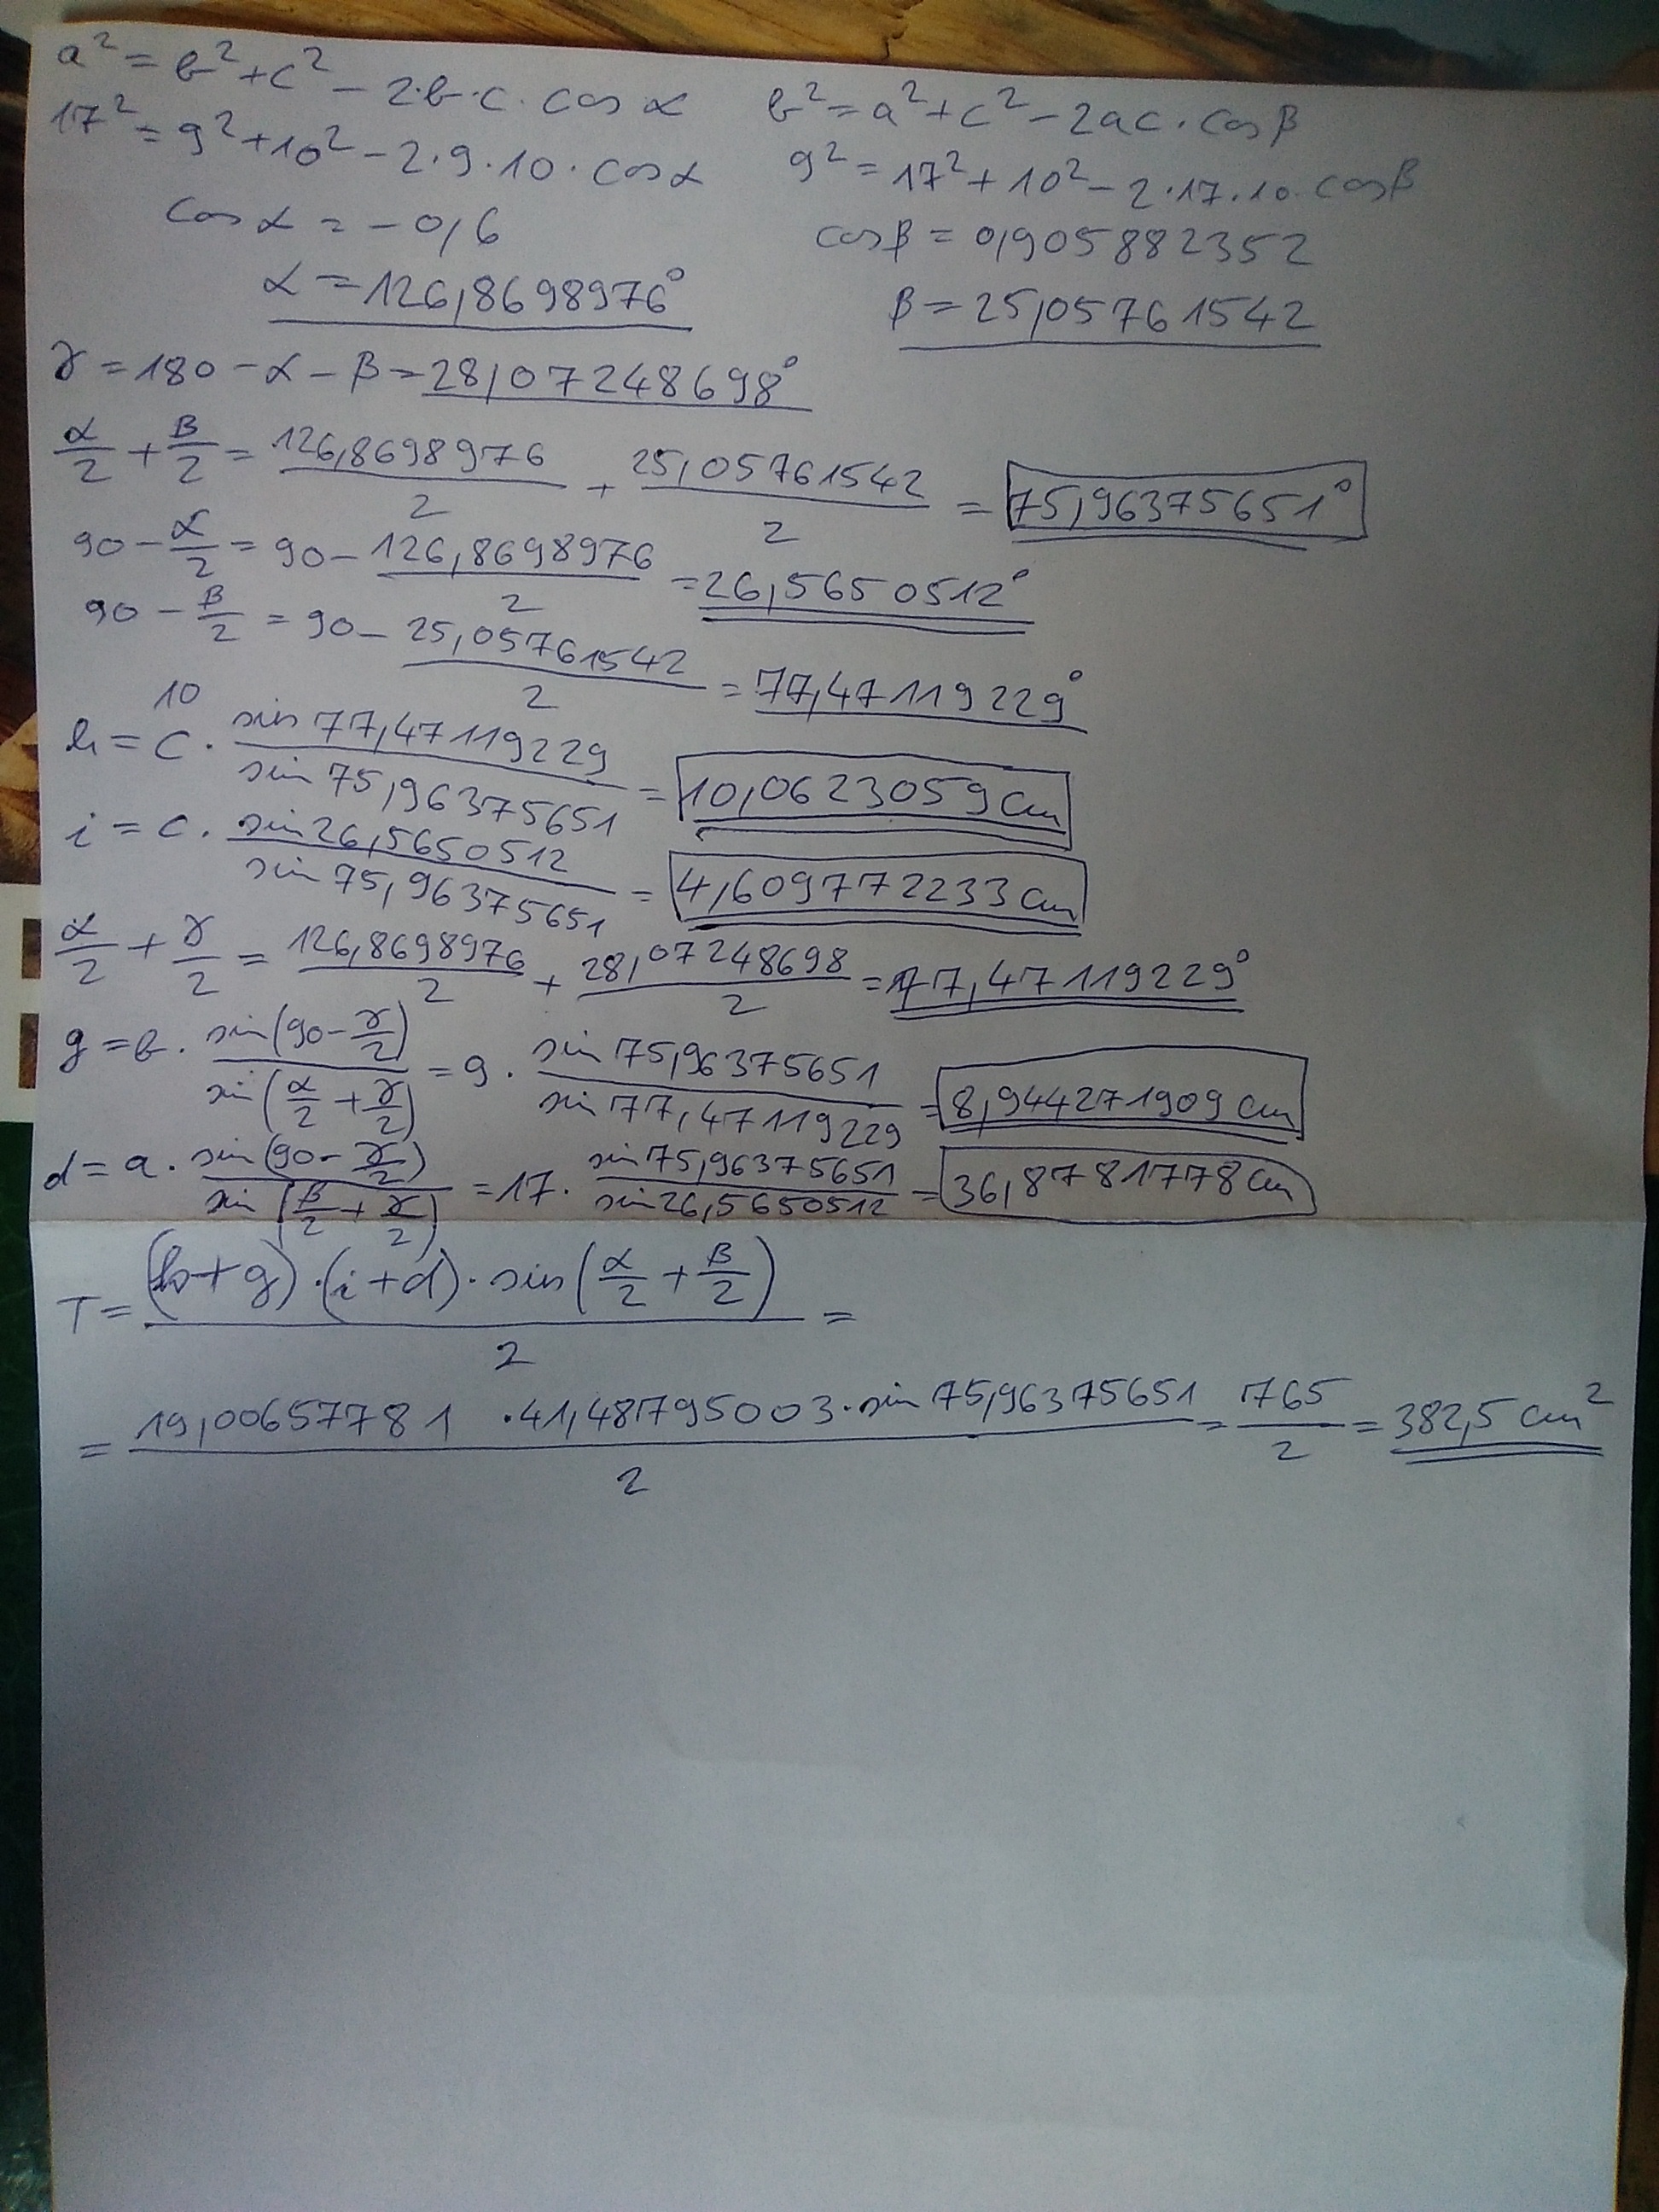 a² = b² + c² - 2·b·c·cos α
17² = 9² + 10² - 2·9·10·cos α
cos α = -0,6
α = 126,8698976°
b² = a² + c² - 2ac·cos β
9² = 17² + 10² - 2·17·10·cos β
cos β = 0,905882352
β = 25,05761542
γ = 180 - α - β = 28,07248698°
α/2 + β/2 = 126,8698976/2 + 25,05761542/2 = 75,96375651°
90 - α/2 = 90 - 126,8698976/2 = 26,5650512°
90 - β/2 = 90 - 25,05761542/2 = 77,47119229°
10
h = c · sin 77,47119229 / sin 75,96375651 = 10,0623059 cm
i = c · sin 26,5650512 / sin 75,96375651 = 4,609772233 cm
α/2 + γ/2 = 126,8698976/2 + 28,07248698/2 = 77,47119229°
g = b · sin(90 - γ/2) / sin(α/2 + γ/2) = 9 · sin 75,96375651 / sin 77,47119229 = 8,944271909 cm
d = a · sin(90 - γ/2) / sin(β/2 + γ/2) = 17 · sin 75,96375651 / sin 26,5650512 = 36,87817778 cm
T = (h + g)·(i + d)·sin(α/2 + β/2) / 2 =
= 19,00657781 · 41,48795003 · sin 75,96375651 / 2 = 765/2 = 382,5 cm²